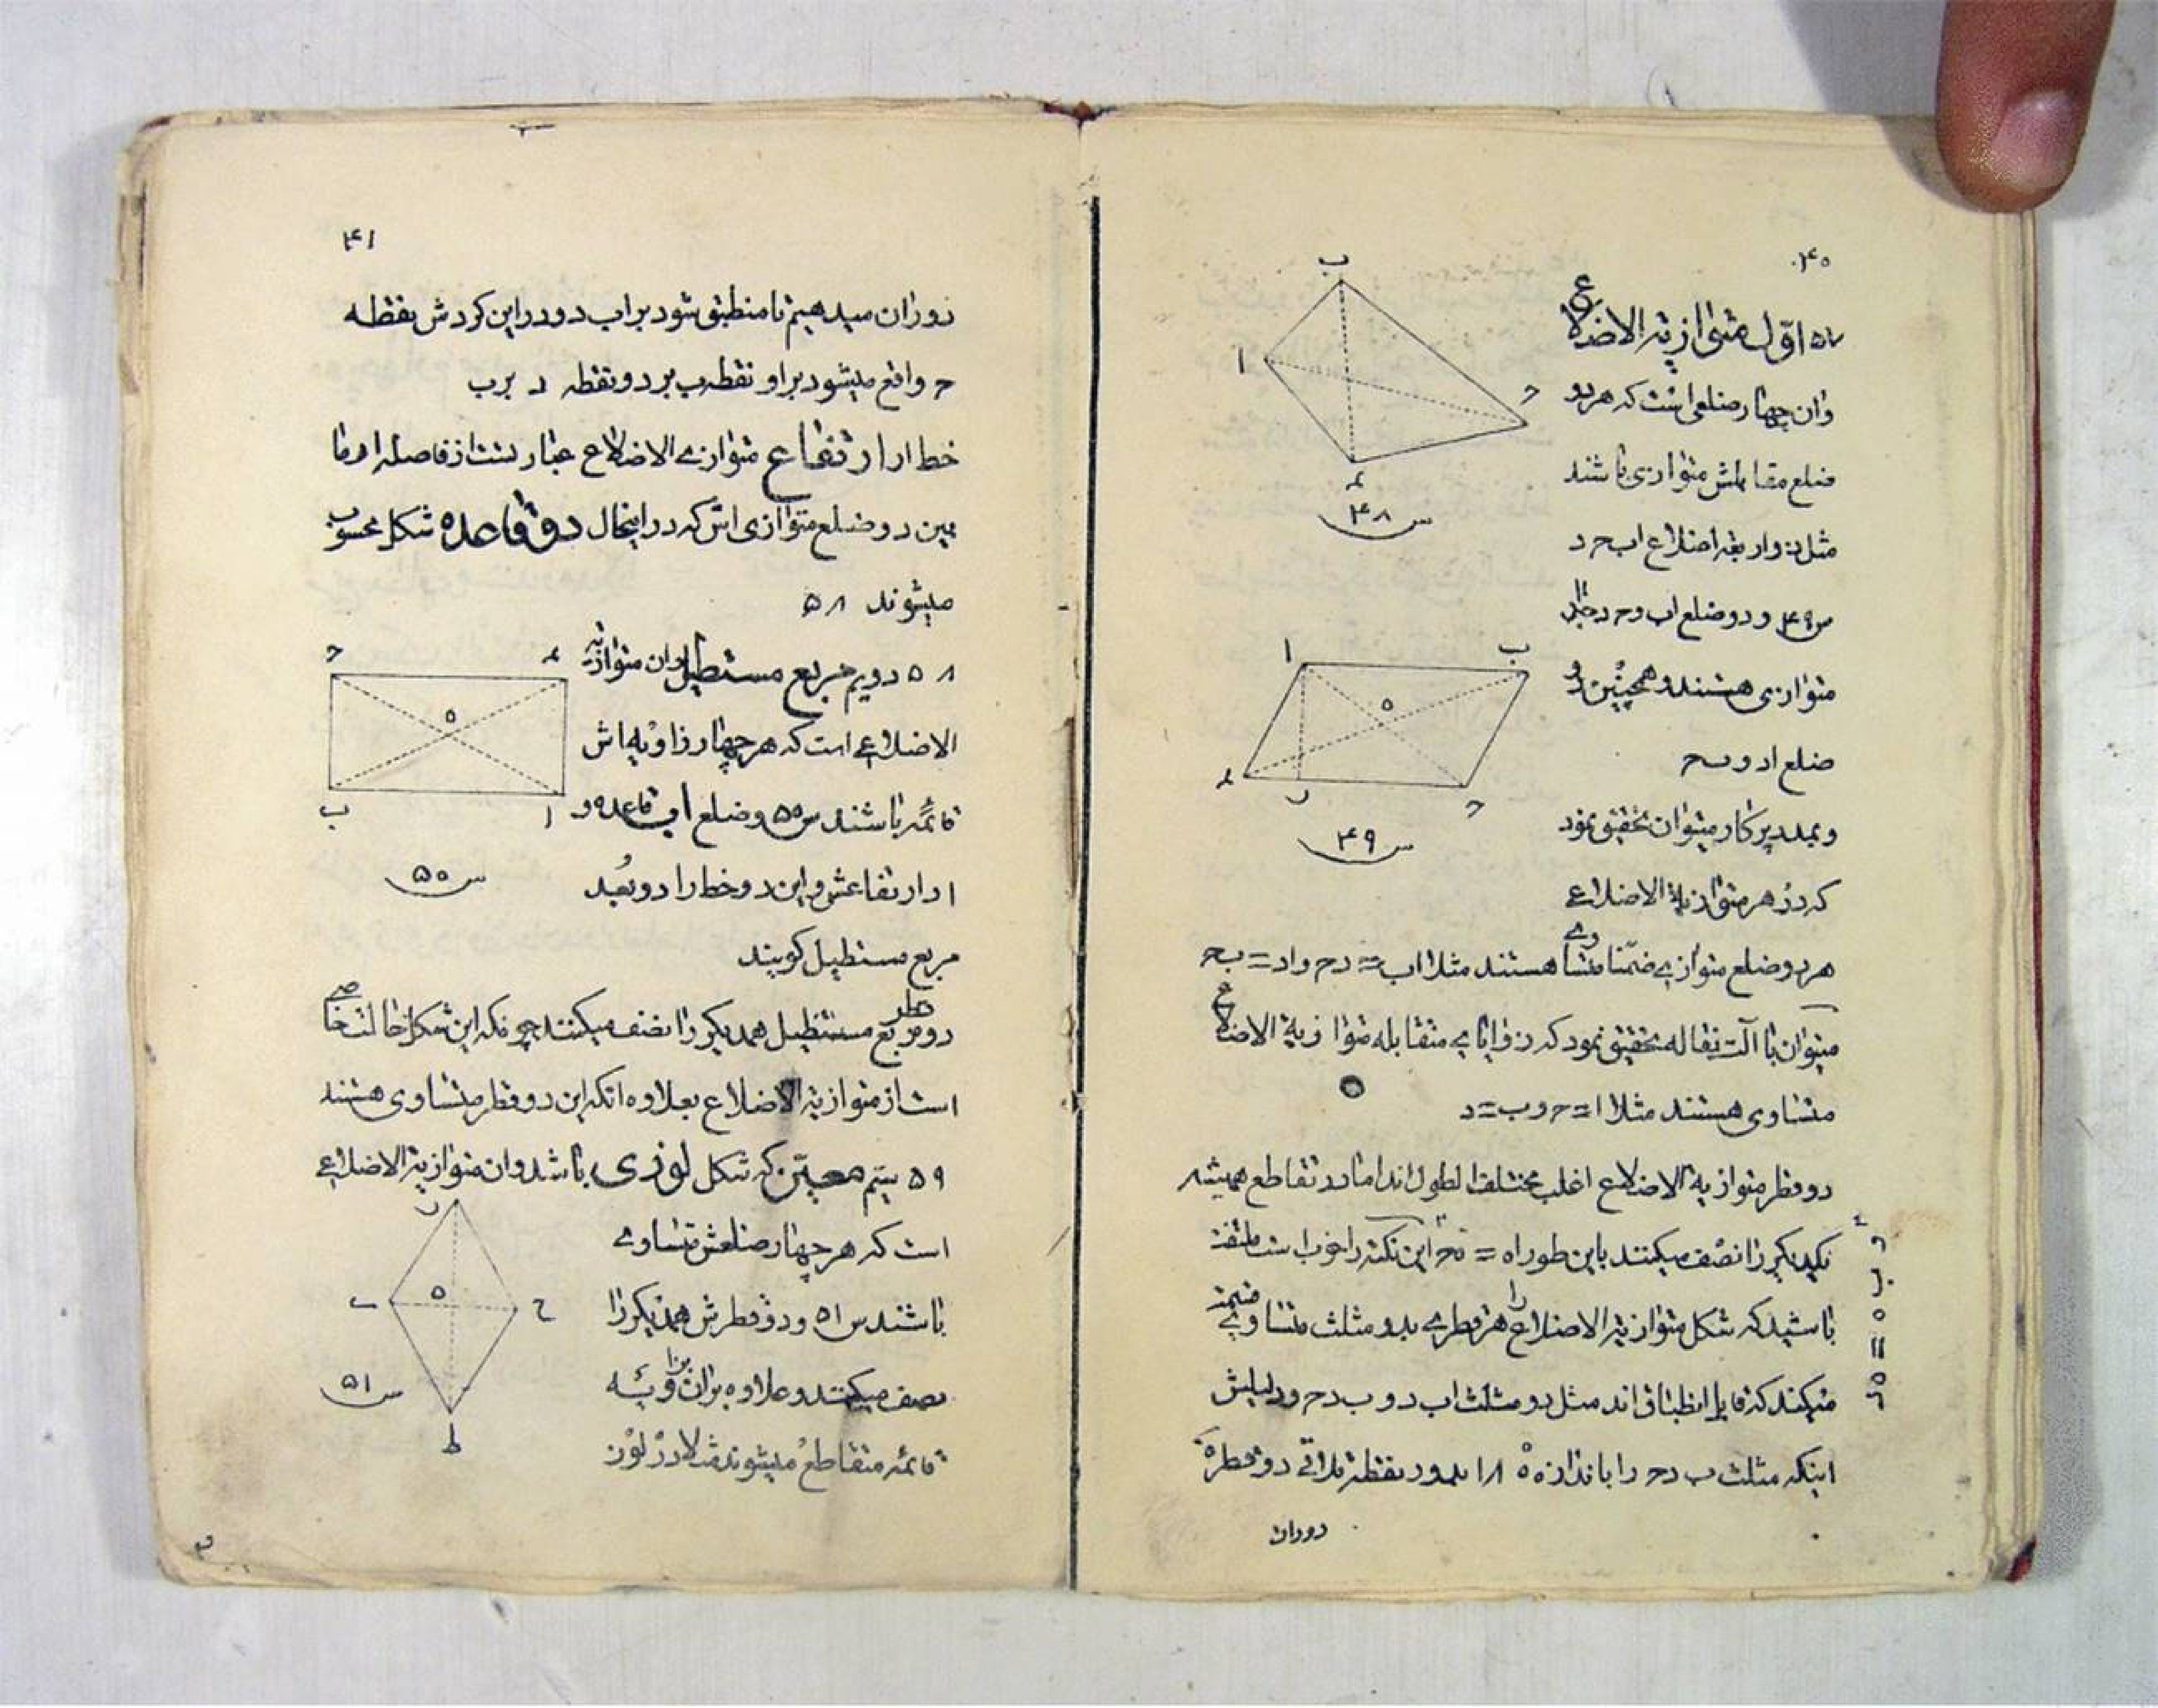 ۴۰
۵۷ اوّل متوازیة الاضلاع
وان چهار ضلعی است که هر دو
ضلع مقابلش متوازی باشند
مثل ذواربعة اضلاع اب ح د
س۴۹ و دو ضلع اب و ح د
متوازی هستند و همچنین دو
ضلع اد و ب ح
و بمدد پرکار میتوان تحقیق نمود
که در هر متوازیة الاضلاعی
هر دو ضلع متوازی ضمنا متساوی هستند مثلا اب = د ح و اد = ب ح
میتوان با آلت نقاله تحقیق نمود که زوایای متقابله متوازیة الاضلاع
متساوی هستند مثلا ا = ح و ب = د
دو قطر متوازیة الاضلاع اغلب مختلف الطول اند اما در تقاطع همیشه
یکدیکر را نصف میکنند باین طور اه = ه ح این نکته را خوب ملتفت
و ب ه = ه د
باشید که شکل متوازیة الاضلاع را هر قطری بدو مثلث متساوی قسمت
میکند که قابل انطباق اند مثل دو مثلث اب د و ب د ح و دلیلش
اینکه مثلث ب د ح را باندازه ۱۸۰° بدور نقطه تلاقی دو قطر ه
دوران
ب
ا
ح
د
س ۴۸
ا
ب
ه
د
ر
ح
س ۴۹
۴۱
دوران میدهیم تا منطبق شود بر اب د و در این کردش نقطه
ح واقع میشود بر ا و نقطه ب بر د و نقطه د بر ب
خط ار ارتفاع متوازی الاضلاع عبارتست از فاصله
بین دو ضلع متوازی اش که در اینحال دو قاعده شکل محسوب
میشوند ۵۸
۵۸ دویم مربع مستطیل وان متوازیة
الاضلاعی است که هر چهار زاویه اش
قائمه باشند س۵۰ و ضلع اب قاعده و
اد ارتفاعش و این دو خط را دو بُعد
مربع مستطیل کویند
دو قطر مربع مستطیل همدیکر را نصف میکنند چونکه این شکل حالت خاصی
است از متوازیة الاضلاع بعلاوه انکه این دو قطر متساوی هستند
۵۹ سیّم معیّن که شکل لوزی باشد وان متوازیة الاضلاعی
است که هر چهار ضلعش متساوی
باشند س۵۱ و دو قطرش همدیکر را
نصف میکنند و علاوه بران بزاویه
قائمه متقاطع میشوند مثلا در لوز
ح
د
ه
ب
ا
س ۵۰
ر
ه
ح
ط
س ۵۱